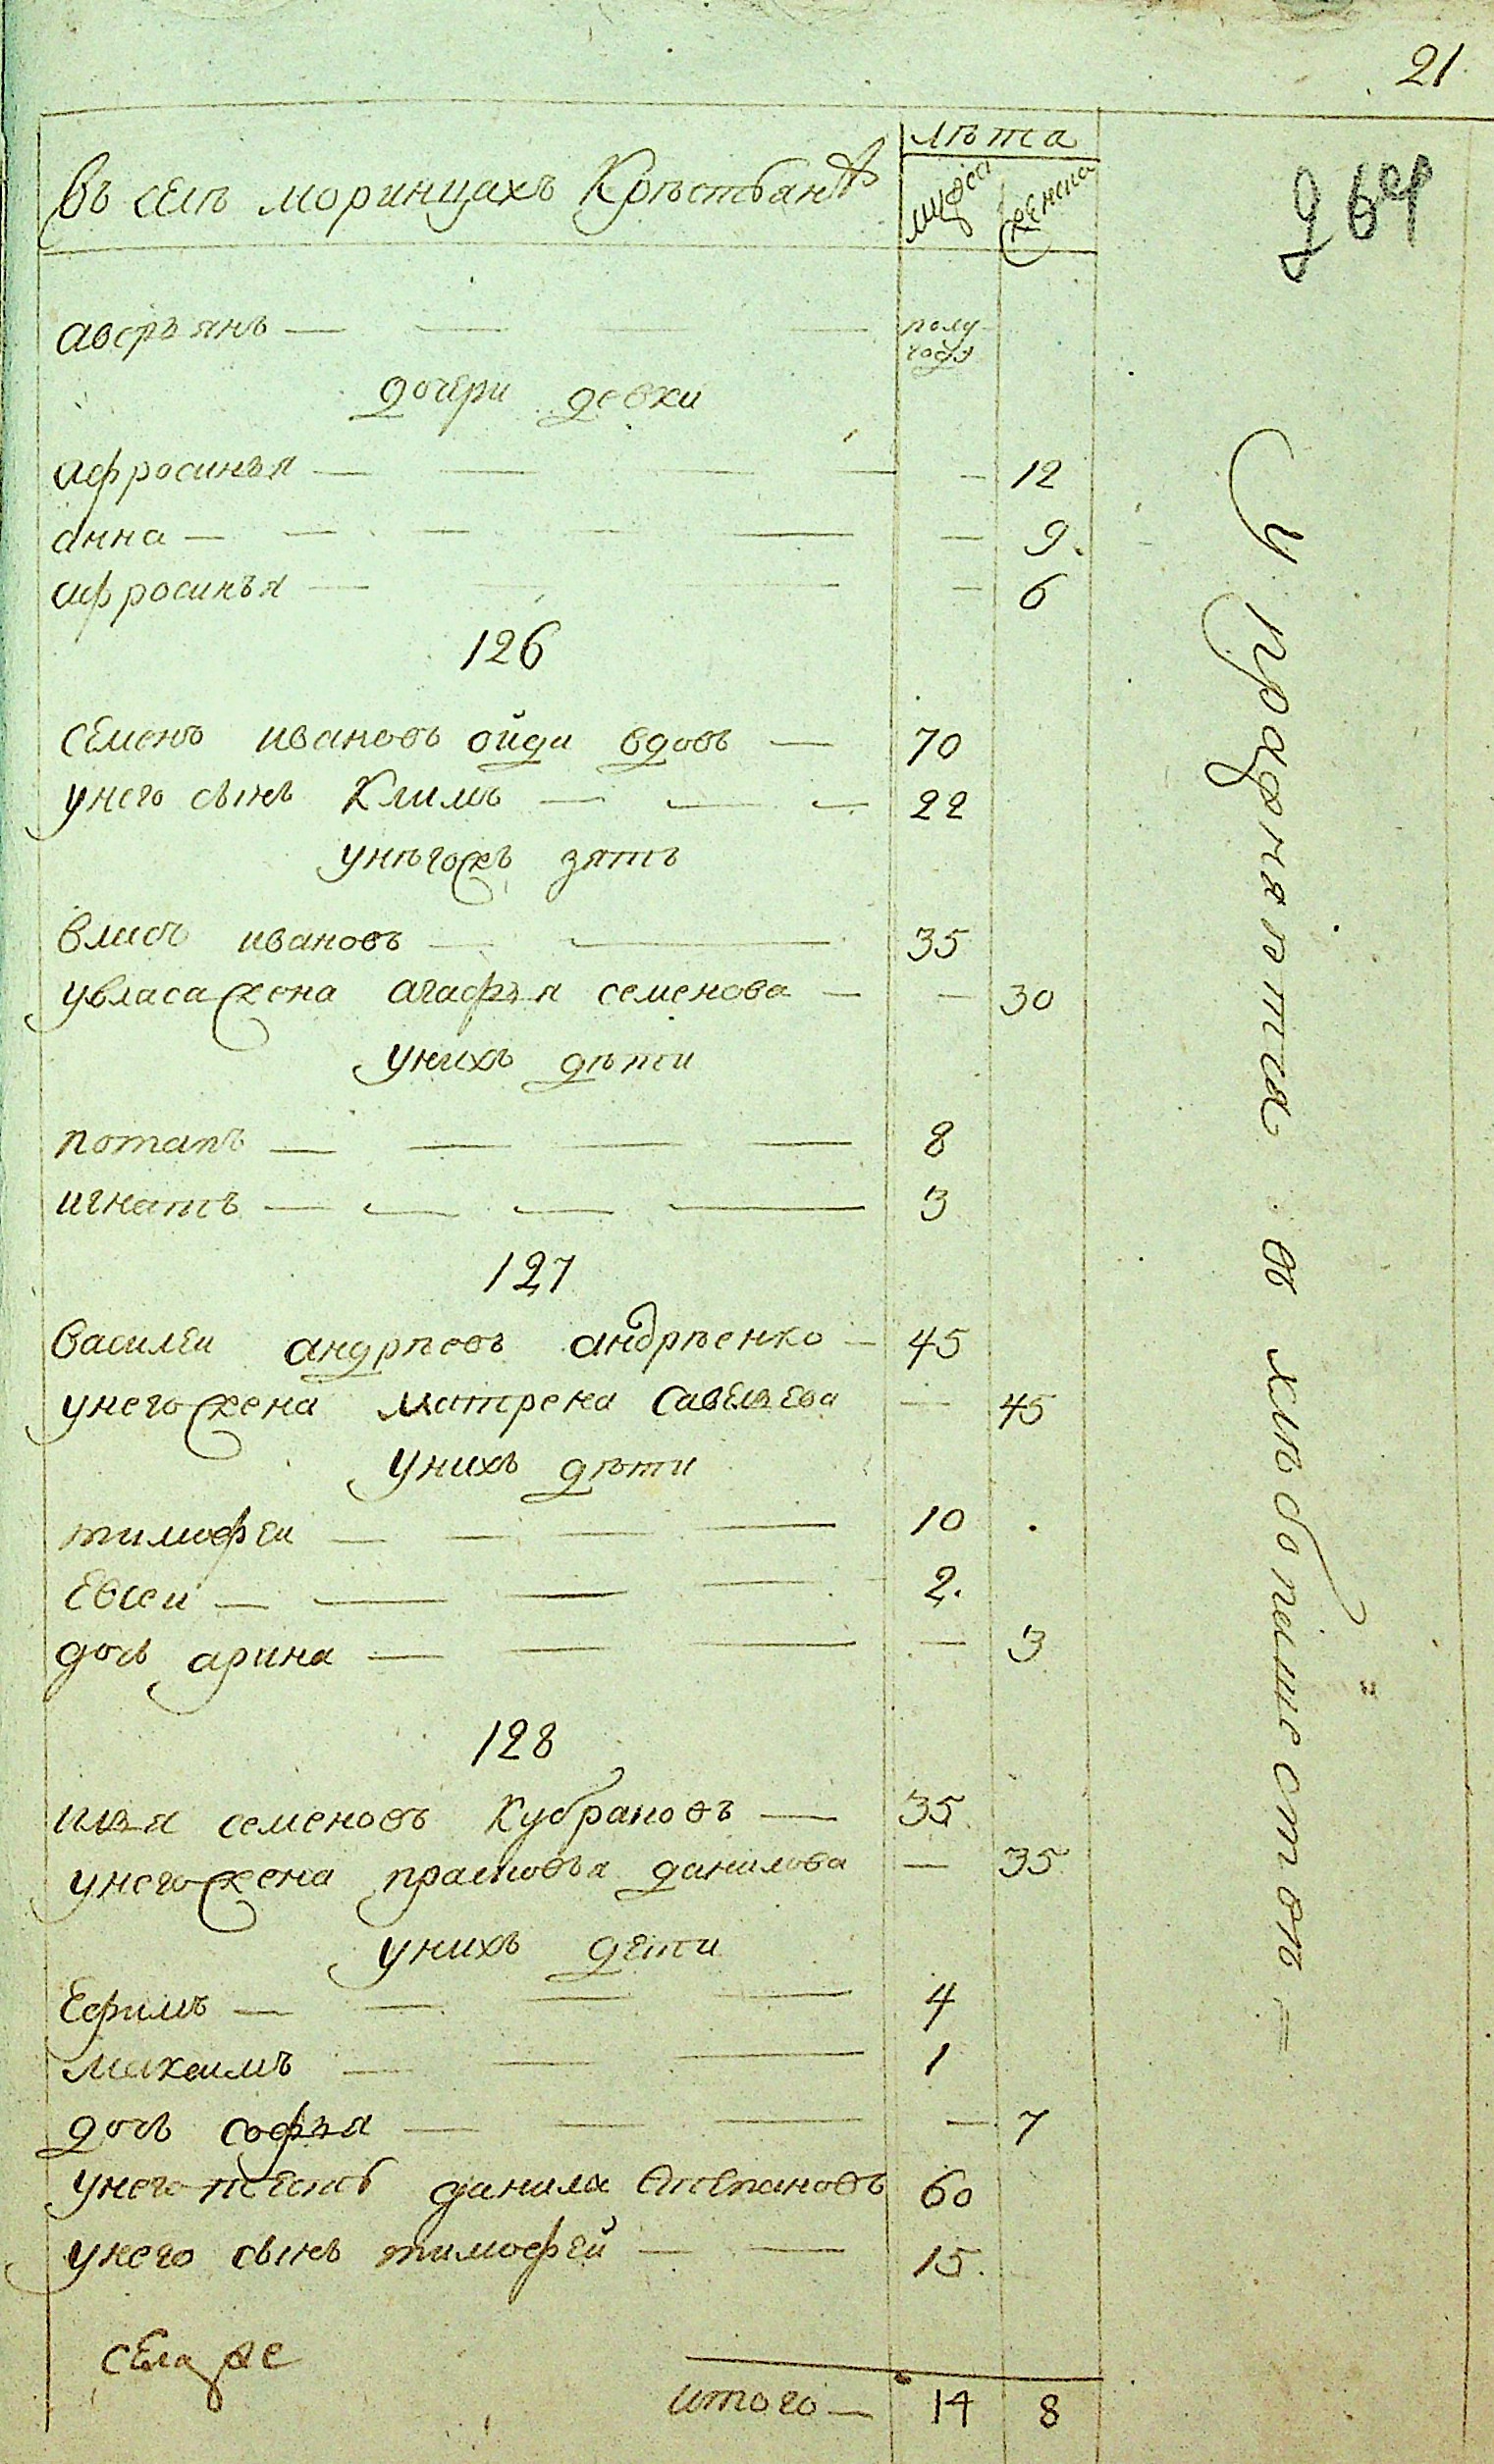 21
264
въ селѣ моринцахъ Крѣстьянъ
лѣта
мужск женска
аверъянъ — полу года
дочери девки
афросинья — 12
анна — 9.
афросинья — 6
126
семенъ ивановъ ойда вдовъ — 70
унего сынъ Климъ — 22
унѣгожъ зять
власъ ивановъ — 35
увласа жена агафья семенова — 30
унихъ дѣти
потапъ — 8
игнатъ — 3
127
василеи андрѣевъ андрѣенко — 45
унего жена матрена савельева — 45
унихъ дѣти
тимофеи — 10
Евсеи — 2.
дочь арина — 3
128
илья семеновъ Кубрановъ — 35
унего жена прасковья данилова — 35
унихъ дети
Ефимъ — 4
максимъ — 1
дочь софья — 7
унего тесть данила степановъ 60
унего сынъ тимофей — 15.
села же
итого — 14 8
упражняютца в хлѣбопашествѣ =